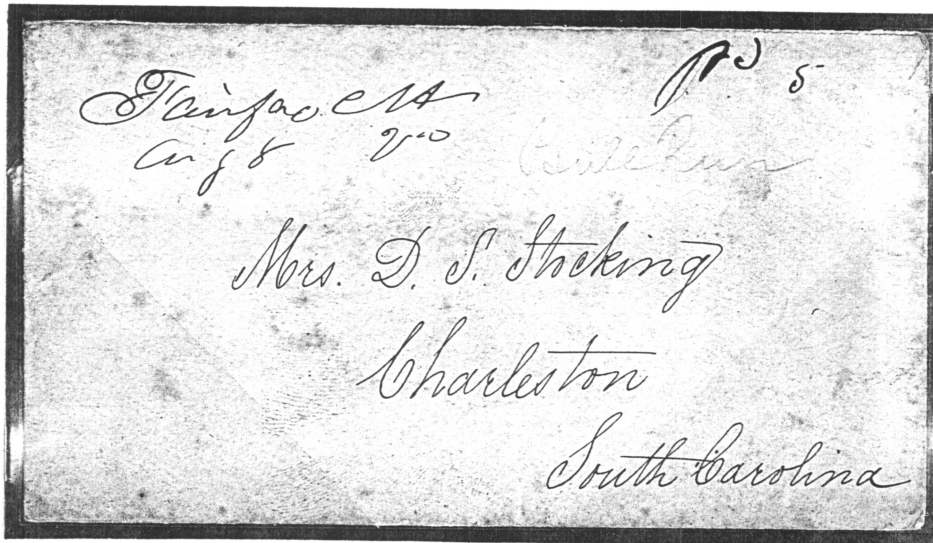 Fairfax CH
Aug 8 Va
Pd 5
Bull Run
Mrs. D. S. Stocking
Charleston
South Carolina